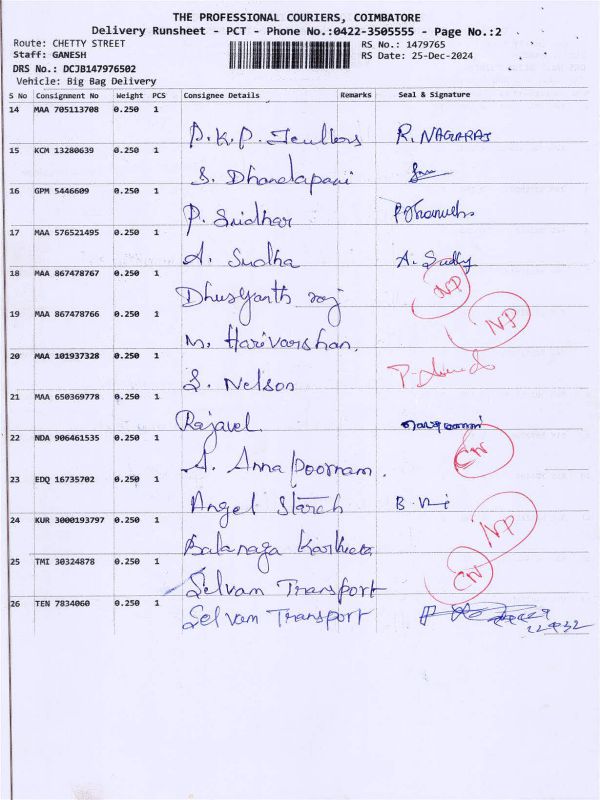 THE PROFESSIONAL COURIERS, COIMBATORE
Delivery Runsheet - PCT - Phone No.:0422-3505555 - Page No.:2
Route: CHETTY STREET RS No.: 1479765
Staff: GANESH RS Date: 25-Dec-2024
DRS No.: DCJB147976502
Vehicle: Big Bag Delivery
S No Consignment No Weight PCS Consignee Details Remarks Seal & Signature
14 MAA 705113708 0.250 1
P.K.P. R. NAGARAJ
15 KCM 13280639 0.250 1
S. Dhandapani
16 GPM 5446609 0.250 1
P. Sridhar
17 MAA 576521495 0.250 1
A. Sudha A.
18 MAA 867478767 0.250 1
Dhusyanth raj NP
19 MAA 867478766 0.250 1
M. Harivarshan. NP
20 MAA 101937328 0.250 1
S. Nelson
21 MAA 650369778 0.250 1
Rajavel.
22 NDA 906461535 0.250 1
A. Annapoornam. CN
23 EDQ 16735702 0.250 1
Angel Starch B.
24 KUR 3000193797 0.250 1
Balanaga NP
25 TMI 30324878 0.250 1
Selvam Transport CN
26 TEN 7834060 0.250 1
Selvam Transport